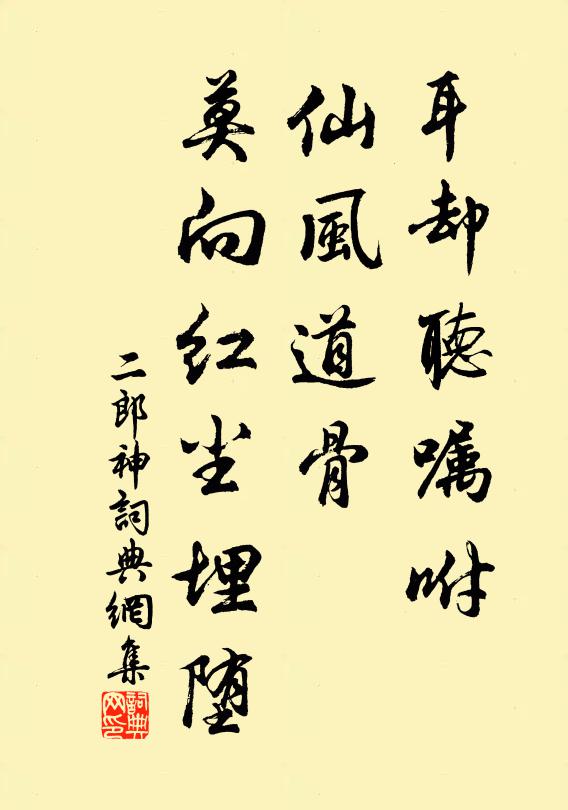 耳却聽嘱咐
仙風道骨
莫向红尘埋堕
二郎神詞典網集
詞典网印